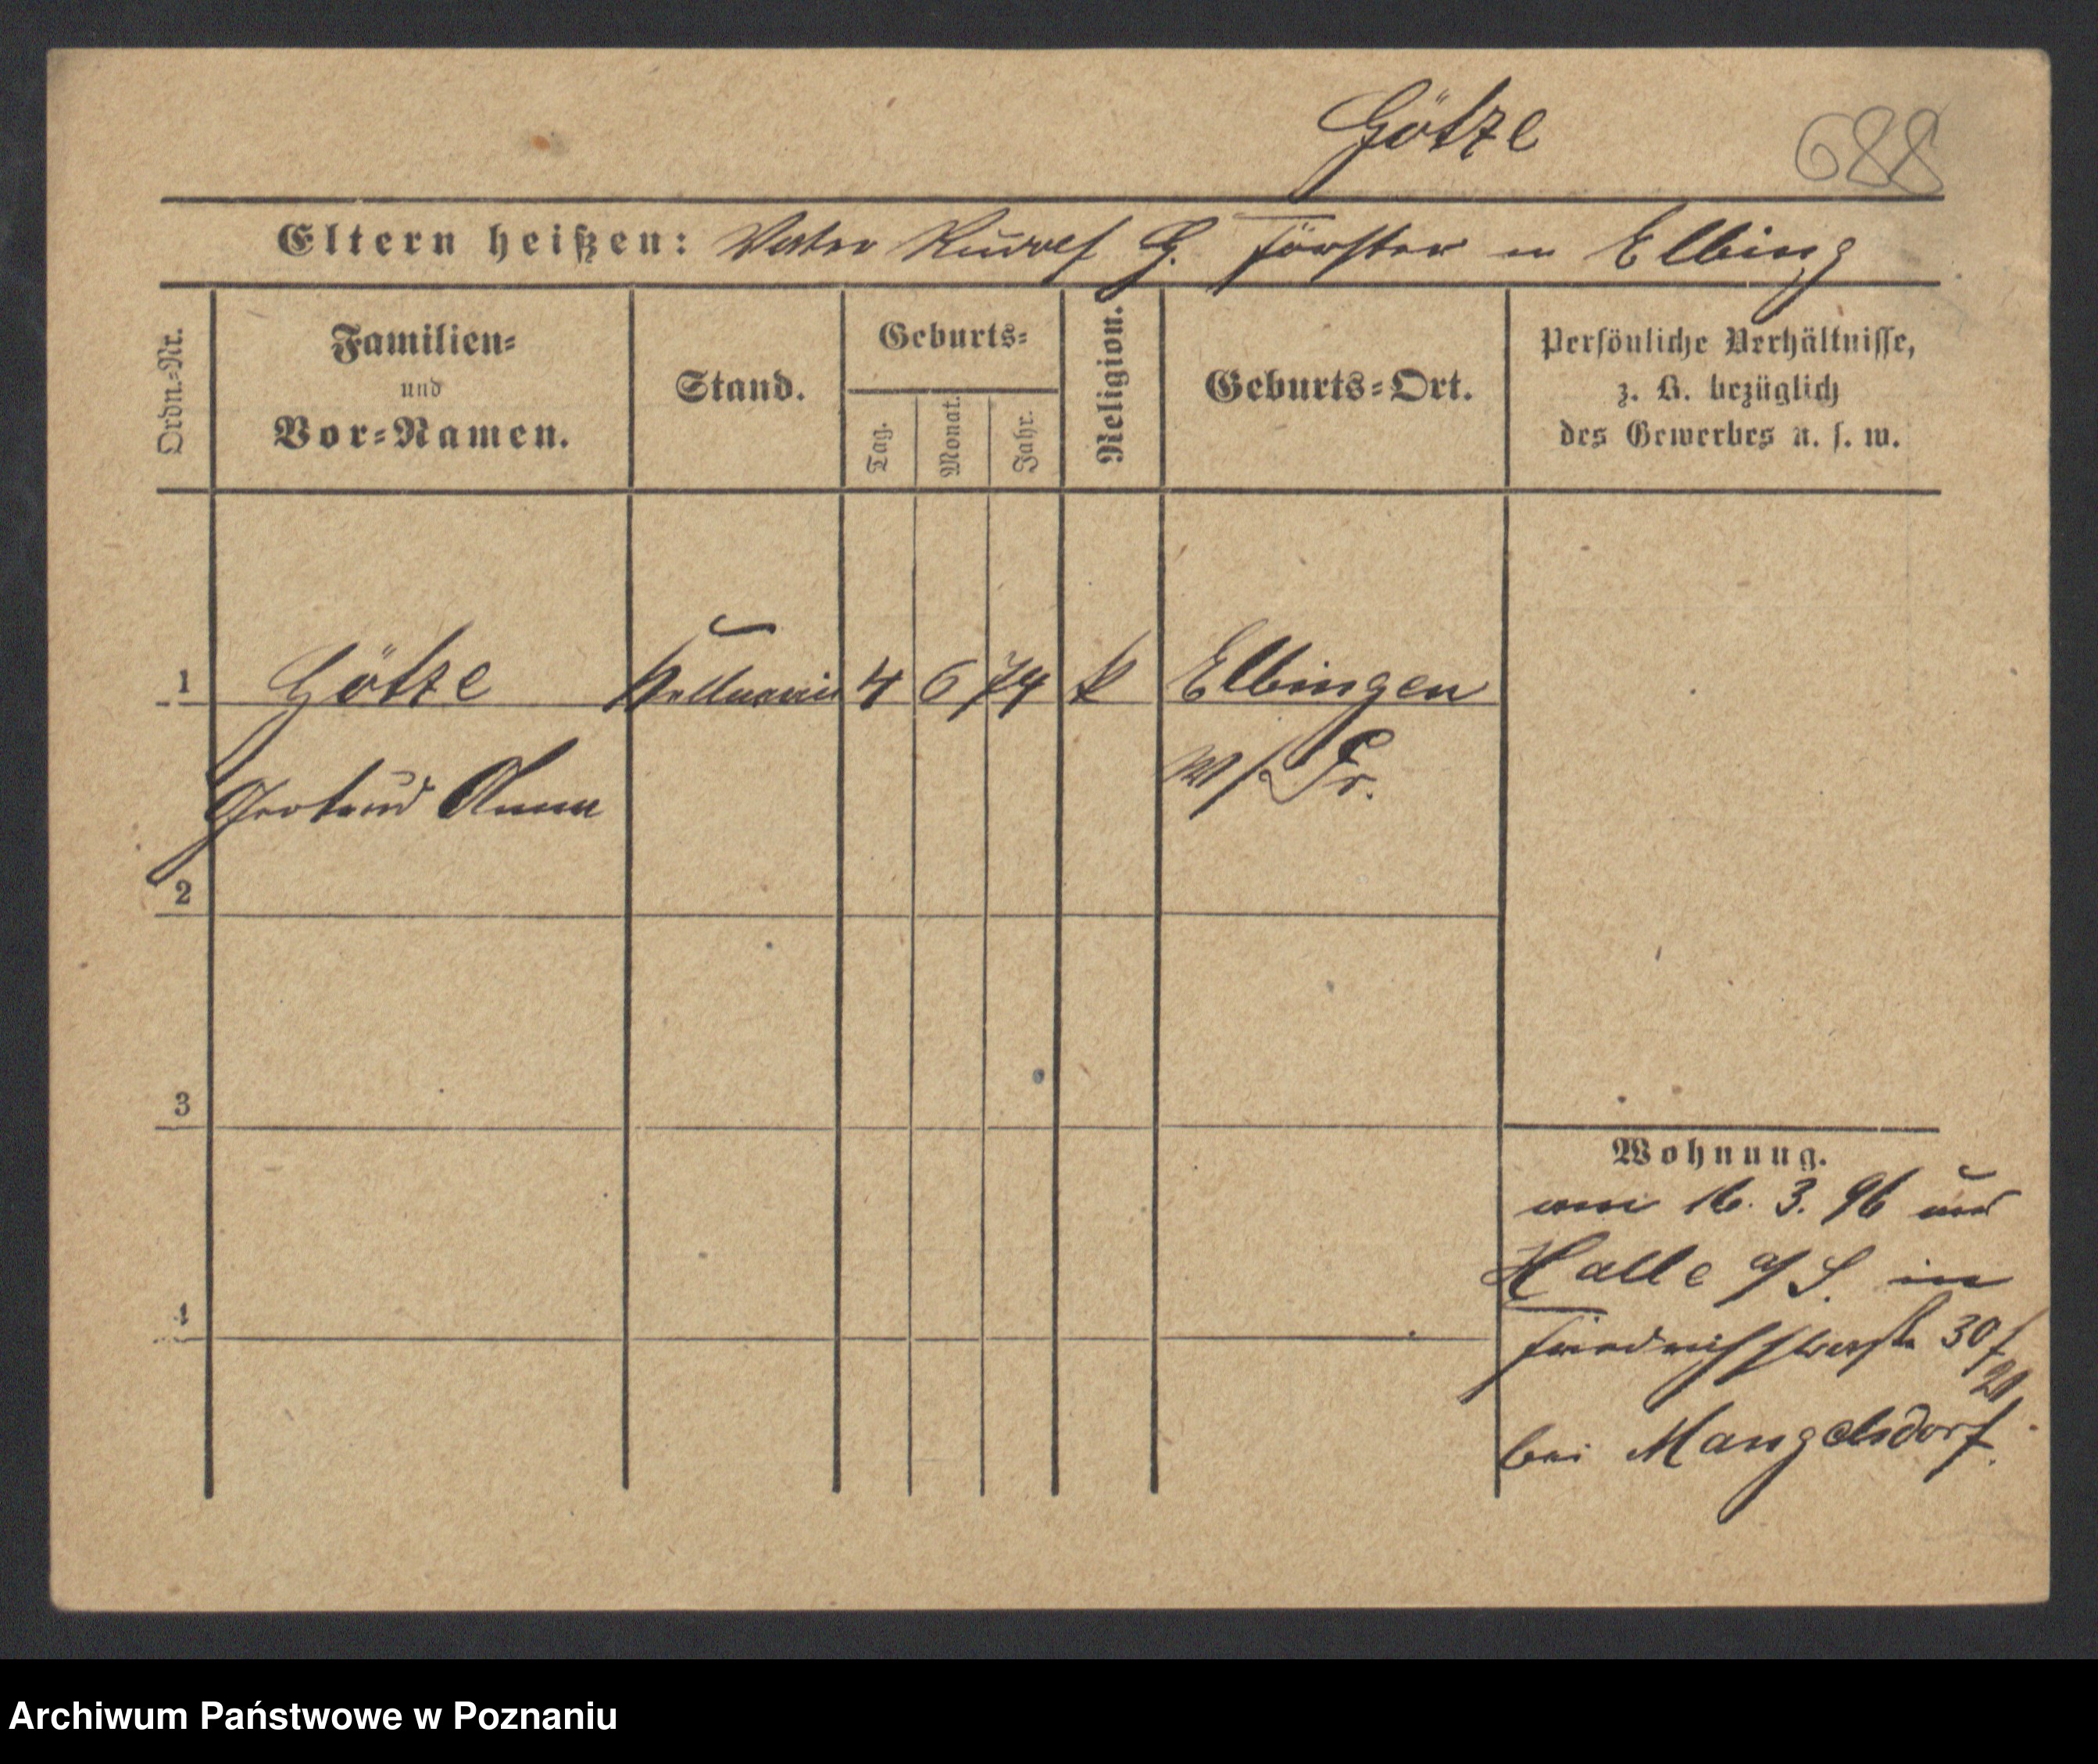 Götze 688
Eltern heißen: Vater Rudolf G. Förster in Elbing
Ordn.-Nr.
Familien-
und
Vor-Namen.
Stand.
Geburts-
Tag.
Monat.
Jahr.
Religion.
Geburts-Ort.
Persönliche Verhältnisse,
z. B. bezüglich
des Gewerbes u. s. w.
1 Götze Kellnerin 4 6 74 k Elbingen
W/Pr.
Gertrud Anna
2
3
4
Wohnung.
am 16. 3. 96 aus
Halle a/S. in
30
bei Mangelsdorf.
Archiwum Państwowe w Poznaniu